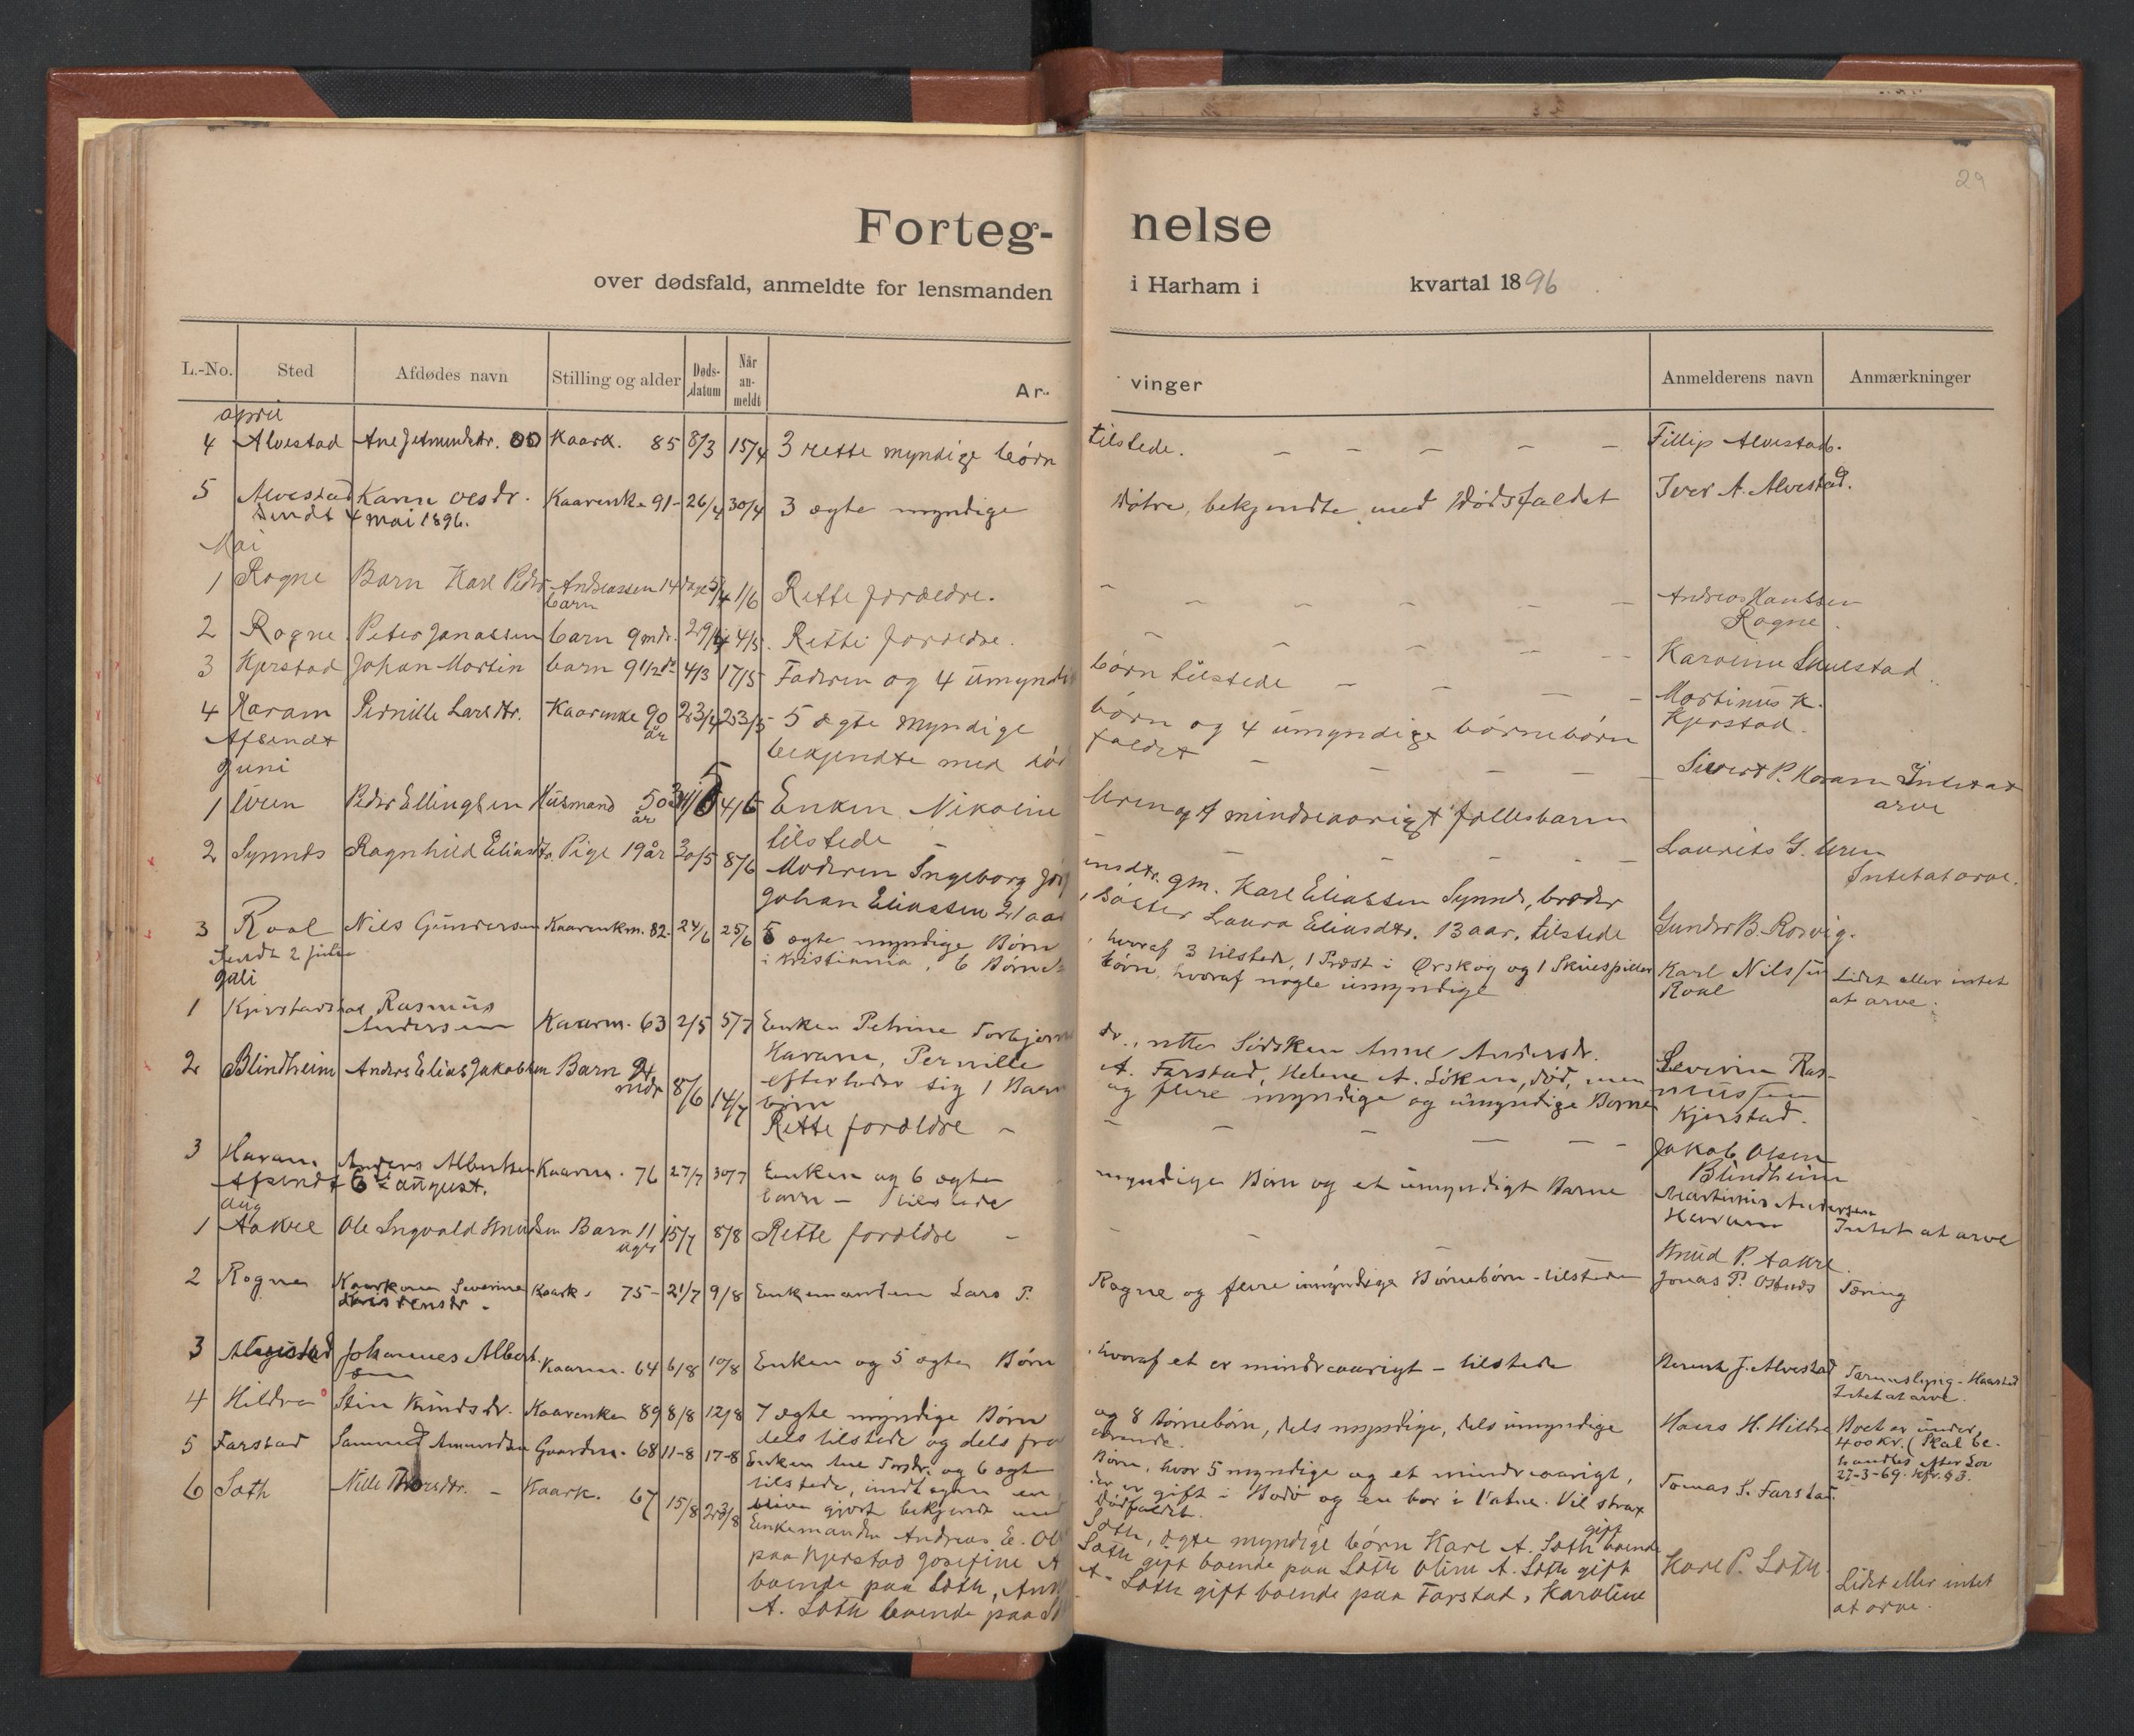 29
Forteg- nelse
over dødsfald, anmeldte for lensmanden i Harham i kvartal 1896
L.-No. Sted Afdødes navn Stilling og alder Døds-datum Når an-meldt Ar- vinger Anmelderens navn Anmærkninger
april
4 Alvestad Ane Kaark. 85 8/3 15/4 3 rette myndige børn tilstede. — — — — — Fillip Alvestad.
5 Alvestad Karen Olsdr. Kaarenke 91 - 26/4 30/4 3 ægte myndige Døtre, bekjendte med Dødsfaldet Iver A. Alvestad.
Sendt 4 mai 1896.
Mai
1 Rogne Barn Karl Peder Andreassen 14 dage 5/4 1/6 Rette foreldre. — — — — — — Andreas Hanssen
barn Rogne.
2 Rogne Peter Jonassen barn 9 mdr. 29/4 4/5. Rette foreldre. — — — — — Karoline
3 Kjerstad Johan Martin barn 9 1/2 4/3 17/5 Faderen og 4 umyndige børn tilstede — — — — Martinus K.
Kjerstad.
4 Haram Pernille Larsdtr. Kaarenke 90 år 23/4 23/5 5 ægte myndige børn og 4 umyndige børnebørn
Afsendt bekjendte med død faldet — — — — — Sivert P. Haram Intet at
arve
Juni
1 Uren Peder Ellingsen Husmand 50 år 4/6 Enken Nikoline Uren og 1 mindreaarigt fællesbarn
tilstede — — — — — Laurits G. Uren
Intet at arve.
2 Synnes Ragnhild Eliasdtr. Pige 19 år 30/5 8/6 Moderen Ingeborg gm. Karl Eliassen Synnes, broder
Johan Eliassen 21 aar, søster Laura Eliasdtr. 13 aar, tilstede Gunder B. Rosvig.
3 Roal Nils Gundersen Kaarenkm. 82 - 24/6 25/6 5 ægte myndige Børn, hvoraf 3 tilstede, 1 Præst i Ørskog og 1 Skuespiller Karl Nilssen Lidet eller intet
Sendt 2 juli i Kristiania, 6 Børnebørn, hvoraf nogle umyndige Roal at arve.
Juli
1 Rasmus
Andersen Kaarm. 63 2/5 5/7 Enken Petrine dr., rette Sødsken Anne Andersdr. Severin Ras-
Haram, Pernille A. Farstad, Helene A. Løken, død, men mussen
efterlader sig 1 Barn og flere myndige og umyndige Børne Kjerstad.
børn
2 Blindheim Anders Elias Jakobsen Barn mdr 8/6 14/7 Rette foreldre — — — — — — — Jakob Olsen
Blindheim
3 Haram Anders Albertsen Kaarm. 76 27/7 30/7 Enken og 6 ægte myndige Børn og et umyndigt Barne Martinus Andersen
Afsendt 6te august. barn — tilstede Haram Intet at arve
Aug
1 Aakre Ole Ingvald Knudsen Barn 11 15/7 8/8 Rette foreldre — — — — Knud P. Aakre.
2 Rogne Kaarkone Severine Kaark. 75 - 21/7 9/8 Enkemanden Lars P. Rogne og flere umyndige Børnebørn - tilstede Jonas P. Tæring
3 Alvestad Johannes Albert- Kaarm. 64 6/8 10/8 Enken og 5 ægte Børn, hvoraf et er mindreaarigt - tilstede J. Alvestad
sen Intet at arve.
4 Hildre Knudsdr. Kaarenke 89 8/8 12/8 7 ægte myndige Børn og 8 Børnebørn, dels myndige, dels umyndige Hans H. Hildre Boet er under
dels tilstede og dels fra værende. 400 Kr. (Skal be-
handles efter Lov
27-3-69. kfr. § 3.
5 Farstad Samuel Amundsen Gaardm. 68 11-8 17-8 Enken og 6 ægte Børn, hvor 5 myndige og et mindreaarigt,
tilstede, undtagen en, der er gift i Bodø og en bor i Vatne. Vil strax Tomas S. Farstad.
blive gjort bekjendt med Dødsfaldet.
6 Søth Nille Thorsdtr. - Kaark. 67 15/8 23/8 Enkemanden Andreas E. Søth, ægte myndige børn Karl A. Søth gift boende
paa Kjerstad Josefine A. Søth gift boende paa Søth Oline A. Søth gift Karl P. Søth.
boende paa Søth, A. Søth gift boende paa Farstad, Karoline Lidet eller intet
A. Søth boende paa at arve.